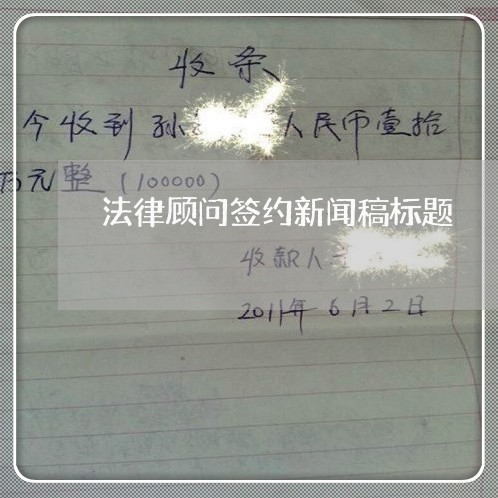 收条
今收到孙 人民币壹拾
万元整（100000）
法律顾问签约新闻稿标题
收款人
2011年6月2日